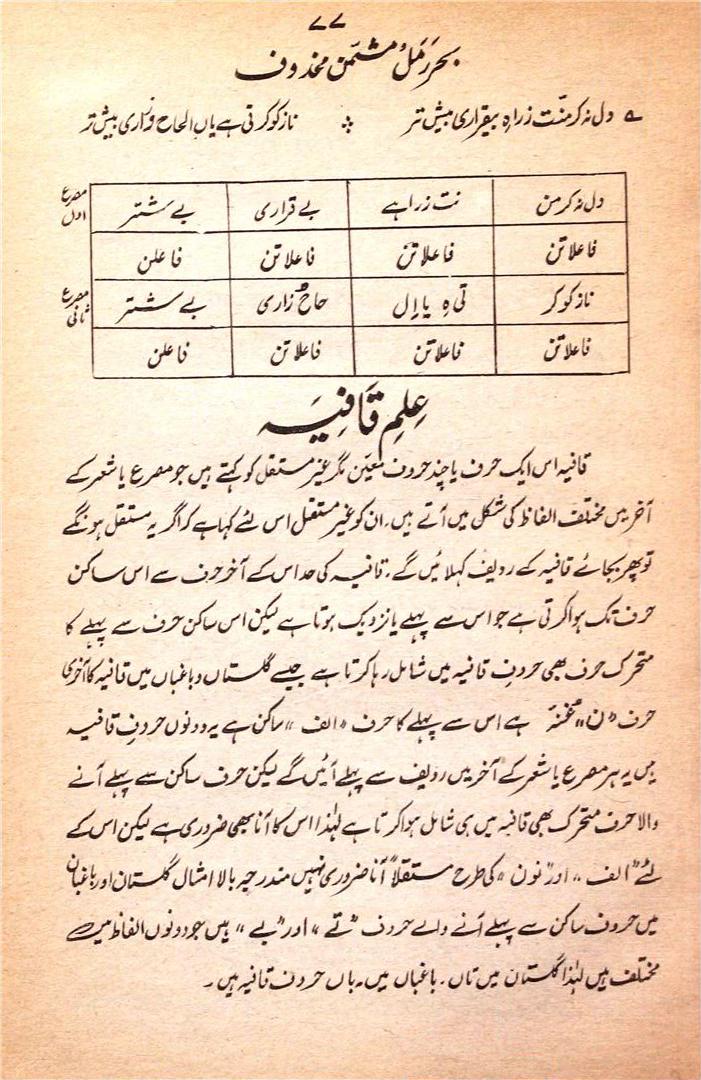 ۷۷
بحر رَمَل مثمّن مخذوف
؎ دل نہ کر منّت زراہِ بیقراری بیش تر ؞ ناز کو کرتی ہے یاں الحاح و زاری بیش تر
مصرع اول
دل نہ کر من | نت زراہے | بے قراری | بے شتر
فاعلاتن | فاعلاتن | فاعلاتن | فاعلن
مصرع ثانی
ناز کو کر | تی ہِ یا اِل | حاحُ زاری | بے شتر
فاعلاتن | فاعلاتن | فاعلاتن | فاعلن
عِلمِ قَافِیَہ
قافیہ اس ایک حرف یا چند حروف معیّن مگر غیر مستقل کو کہتے ہیں جو مصرع یا شعر کے
آخر میں مختلف الفاظ کی شکل میں آتے ہیں۔ ان کو غیر مستقل اس لئے کہا ہے کہ اگر یہ مستقل ہونگے
تو پھر بجائے قافیہ کے ردیف کہلائیں گے۔ قافیہ کی حد اس کے آخر حرف سے اس ساکن
حرف تک ہوا کرتی ہے جو اس سے پہلے یا نزدیک ہوتا ہے لیکن اس ساکن حرف سے پہلے کا
متحرک حرف بھی حروفِ قافیہ میں شامل رہا کرتا ہے جیسے گلستاں و باغباں میں قافیہ کا آخری
حرف "ن" غنّہ ہے اس سے پہلے کا حرف "الف" ساکن ہے یہ دونوں حروفِ قافیہ
ہیں یہ ہر مصرع یا شعر کے آخر میں ردیف سے پہلے آئیں گے لیکن حرف ساکن سے پہلے آنے
والا حرف متحرک بھی قافیہ میں ہی شامل ہوا کرتا ہے لہٰذا اس کا آنا بھی ضروری ہے لیکن اس کے
لئے "الف" اور "نون" کی طرح مستقلاً آنا ضروری نہیں مندرجہ بالا امثال گلستان اور باغباں
میں حروف ساکن سے پہلے آنے والے حروف "تے" اور "بے" ہیں جو دونوں الفاظ میں
مختلف ہیں لہٰذا گلستاں میں تاں۔ باغباں میں۔ باں حروف قافیہ ہیں۔